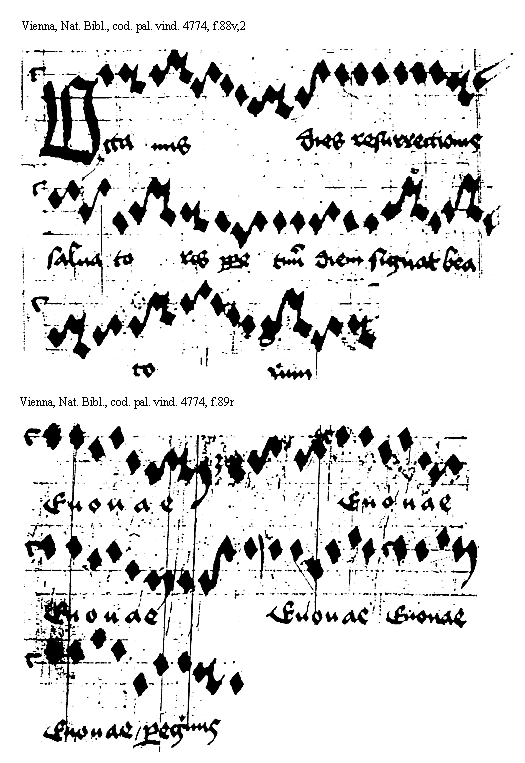 Vienna, Nat. Bibl., cod. pal. vind. 4774, f.88v,2
dies resurrectionis
salua to res ppe tuū diem signat bea
to rum
Vienna, Nat. Bibl., cod. pal. vind. 4774, f.89r
Euouae Euouae
Euouae Euouae Euouae
Euouae